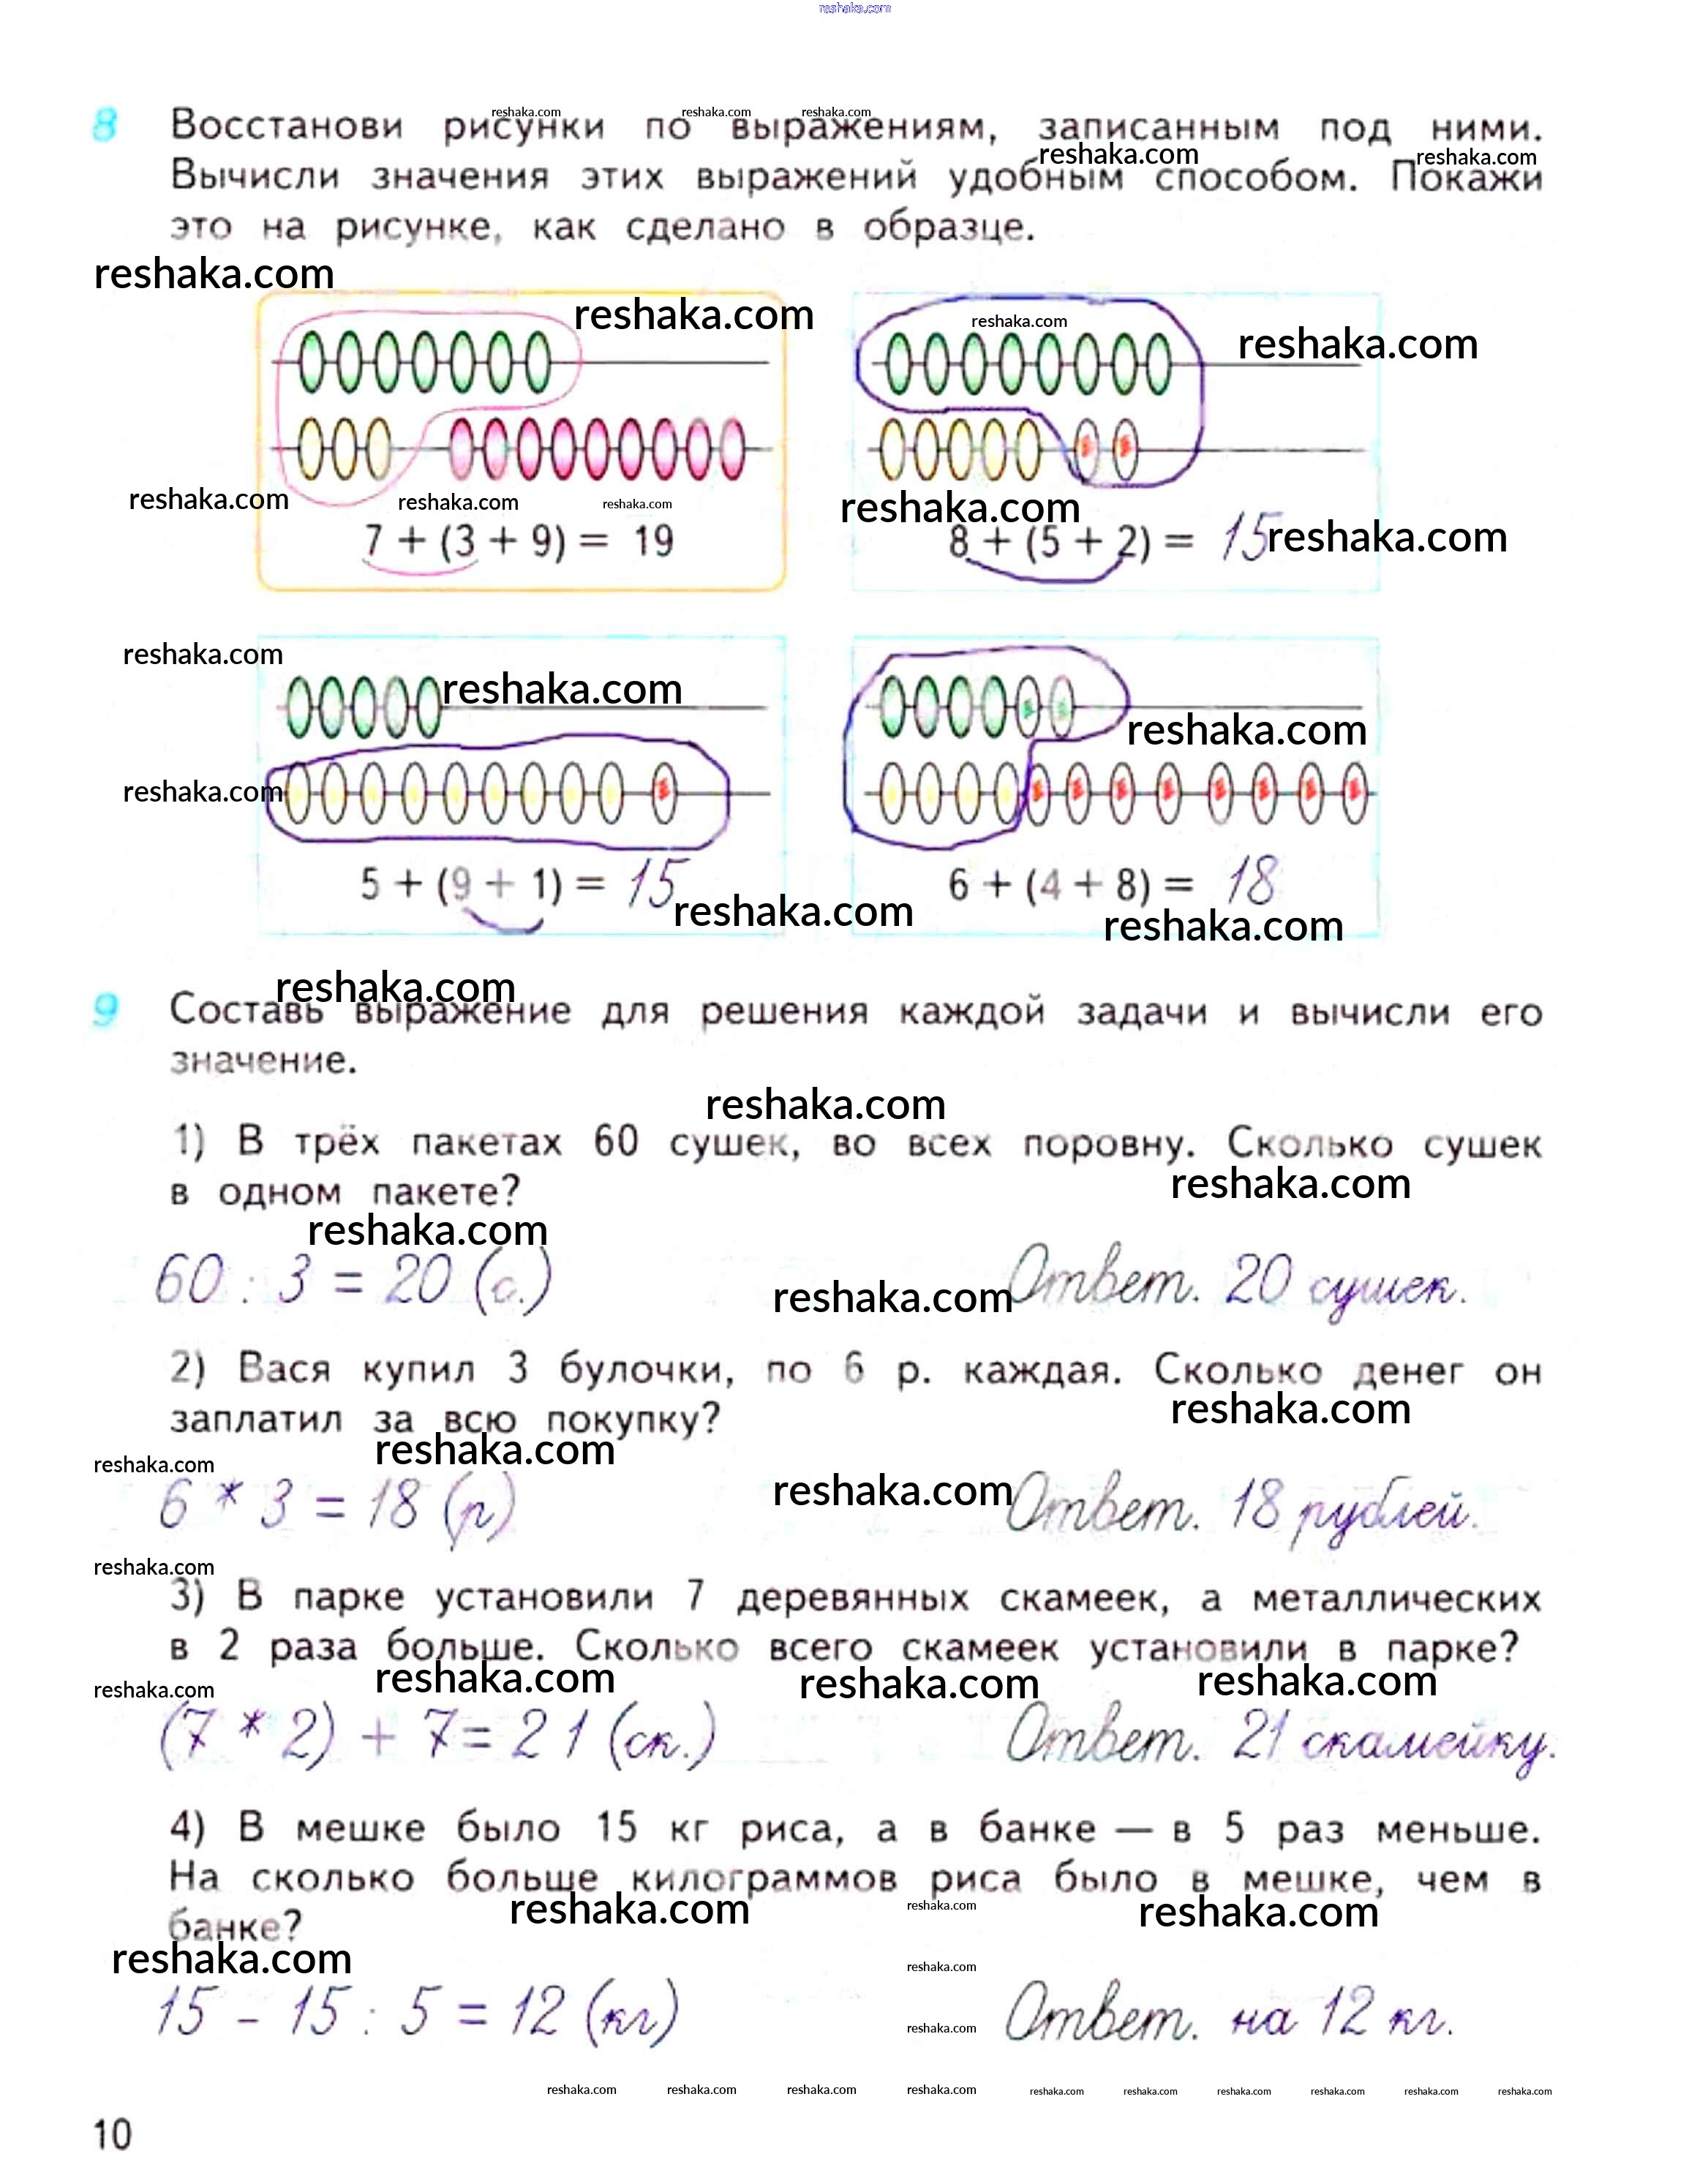 reshaka.com
8 Восстанови рисунки по выражениям, записанным под ними.
reshaka.com reshaka.com reshaka.com
Вычисли значения этих выражений удобным способом. Покажи
reshaka.com reshaka.com
это на рисунке, как сделано в образце.
reshaka.com
reshaka.com reshaka.com reshaka.com
reshaka.com reshaka.com reshaka.com reshaka.com
7 + (3 + 9) = 19 8 + (5 + 2) = 15 reshaka.com
reshaka.com
reshaka.com reshaka.com
reshaka.com
5 + (9 + 1) = 15 6 + (4 + 8) = 18
reshaka.com reshaka.com
reshaka.com
9 Составь выражение для решения каждой задачи и вычисли его
значение.
reshaka.com
1) В трёх пакетах 60 сушек, во всех поровну. Сколько сушек
в одном пакете?
reshaka.com
reshaka.com
60 : 3 = 20 (с.) reshaka.com Ответ. 20 сушек.
2) Вася купил 3 булочки, по 6 р. каждая. Сколько денег он
заплатил за всю покупку?
reshaka.com
reshaka.com reshaka.com
6 * 3 = 18 (р) reshaka.com Ответ. 18 рублей.
reshaka.com
3) В парке установили 7 деревянных скамеек, а металлических
в 2 раза больше. Сколько всего скамеек установили в парке?
reshaka.com reshaka.com reshaka.com reshaka.com
(7 * 2) + 7 = 21 (ск.) Ответ. 21 скамейку.
4) В мешке было 15 кг риса, а в банке — в 5 раз меньше.
На сколько больше килограммов риса было в мешке, чем в
reshaka.com reshaka.com reshaka.com
банке?
reshaka.com reshaka.com
15 - 15 : 5 = 12 (кг) reshaka.com Ответ. на 12 кг.
reshaka.com reshaka.com reshaka.com reshaka.com reshaka.com reshaka.com reshaka.com reshaka.com reshaka.com reshaka.com
10